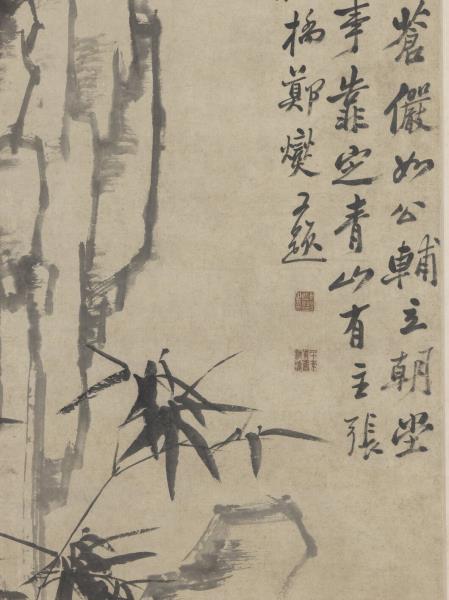 蒼儼如公輔立朝堂
事靠定青山有主張
橋鄭燮又題